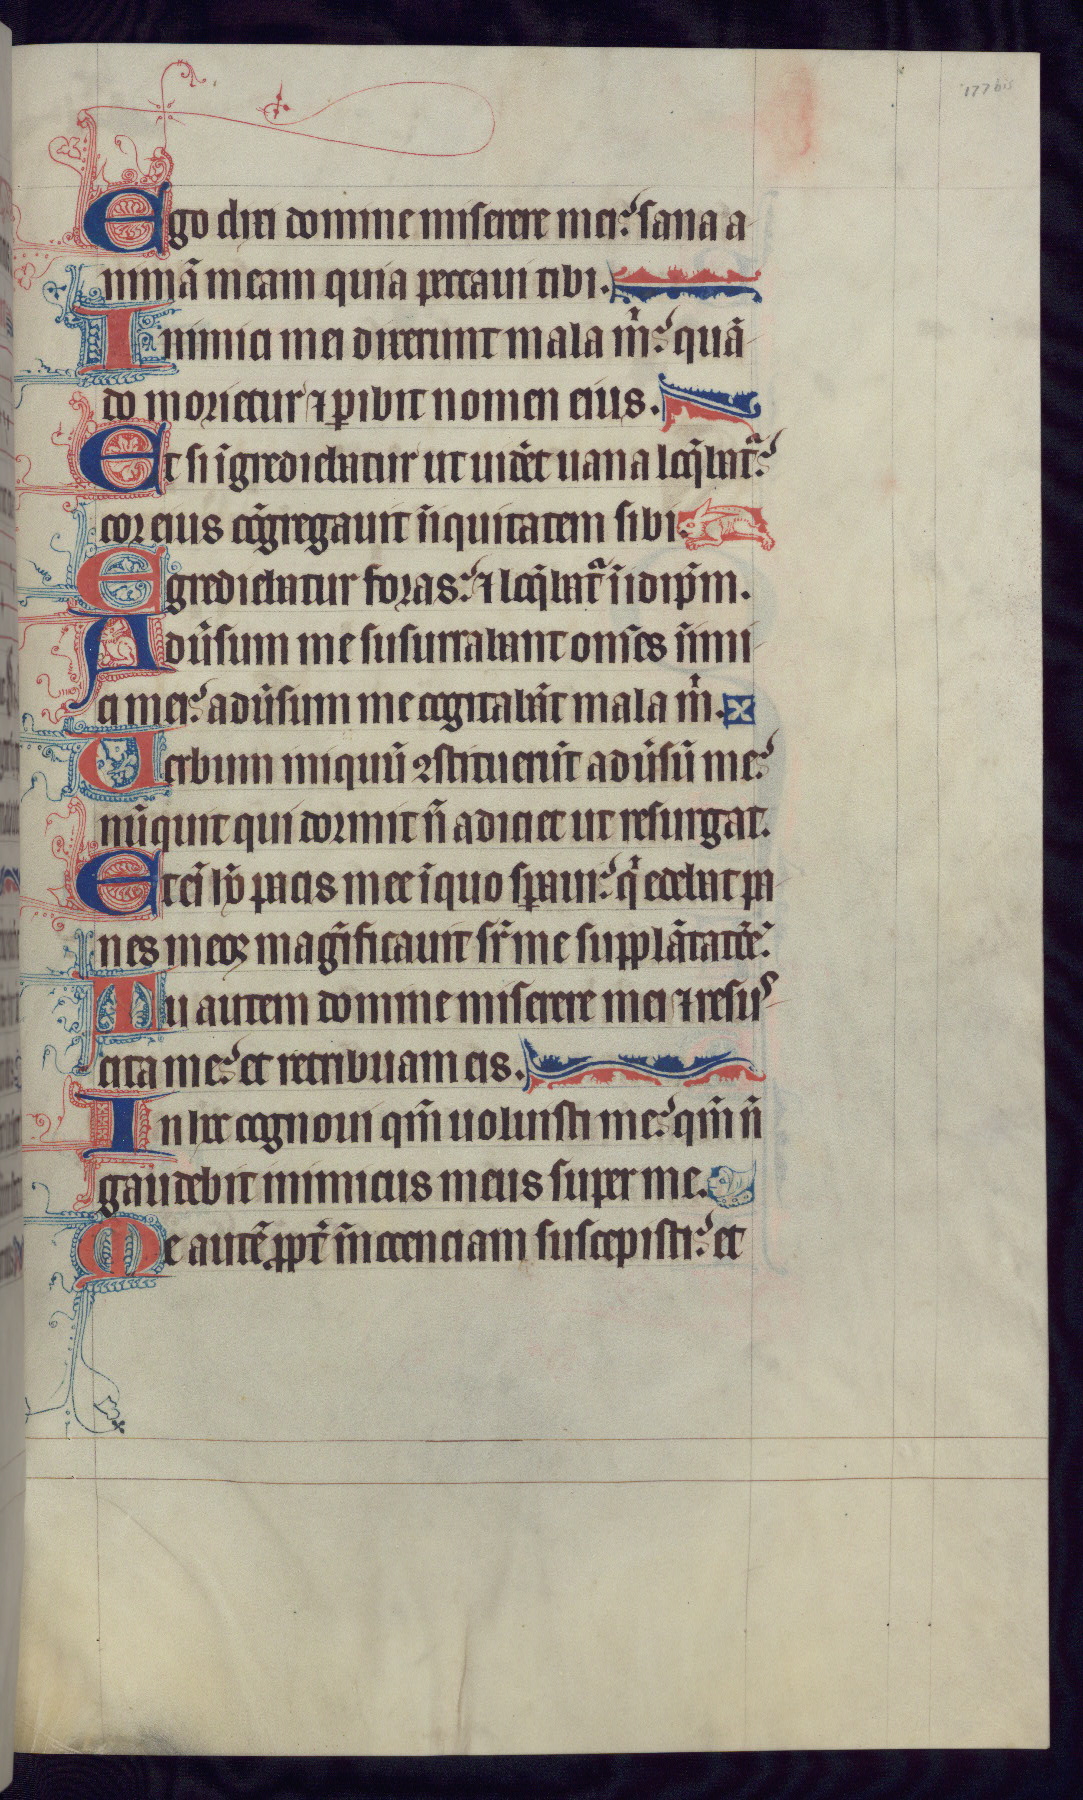 177bis
Ego dixi domine miserere mei: sana a
nimā meam quia peccavi tibi.
Inimici mei dixerunt mala m̄: quā
do morietur ⁊ p̱ibit nomen eius.
Et si īgrediebatur ut uidēt uana loq̄bat᷑:
cor eius cōgregauit īiquitatem sibi.
Egrediebatur foras: ⁊ loq̄bat᷑ ī idip̄m.
Adūsum me susurrabant om̄es īimi
ci mei: adūsum me cogitabāt mala m̄.
Uerbum iniquū ꝯstituerūt adūsū me:
nūquit qui dormit n̄ adiciet ut resurgat.
Etēī hō pacis mee ī quo sp̱aui: q̄ edebat pa
nes meos magīficauit sr̄ me supplātatōē:
Tu autem domine miserere mei ⁊ resus
cita me: et retribuam eis.
In hoc cognoui qm̄ uoluisti me: qm̄ n̄
gaudebit inimicus meus super me.
Me autē ꝓpt̄ īnocenciam suscepisti: et